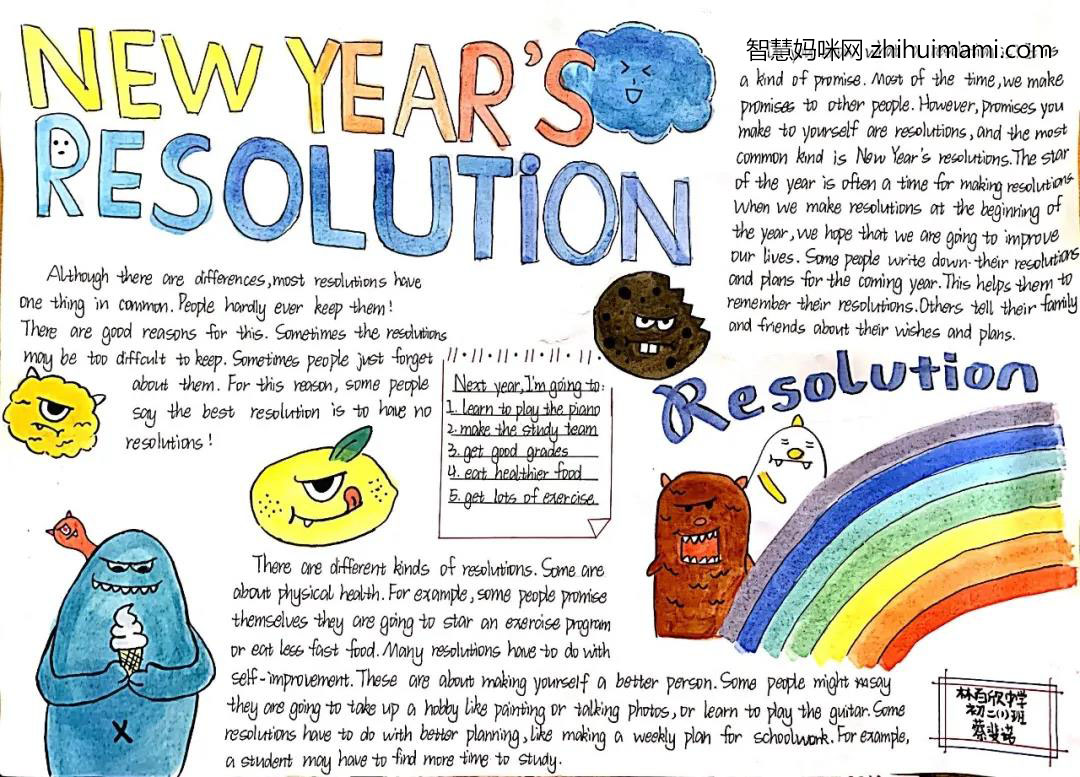 NEW YEAR'S
RESOLUTION
智慧妈咪网 zhihuimami.com
a kind of promise. Most of the time, we make
promises to other people. However, promises you
make to yourself are resolutions, and the most
common kind is New Year's resolutions. The star
of the year is often a time for making resolutions
When we make resolutions at the beginning of
the year, we hope that we are going to improve
our lives. Some people write down their resolutions
and plans for the coming year. This helps them to
remember their resolutions. Others tell their family
and friends about their wishes and plans.
Although there are differences, most resolutions have
one thing in common. People hardly ever keep them!
There are good reasons for this. Sometimes the resolutions
may be too difficult to keep. Sometimes people just forget
about them. For this reason, some people
say the best resolution is to have no
resolutions!
Next year, I'm going to:
1. learn to play the piano
2. make the study team
3. get good grades
4. eat healthier food
5. get lots of exercise.
Resolution
There are different kinds of resolutions. Some are
about physical health. For example, some people promise
themselves they are going to star an exercise program
or eat less fast food. Many resolutions have to do with
self-improvement. These are about making yourself a better person. Some people might say
they are going to take up a hobby like painting or talking photos, or learn to play the guitar. Some
resolutions have to do with better planning, like making a weekly plan for schoolwork. For example,
a student may have to find more time to study.
林百欣中学
初二(1)班
蔡斐诺